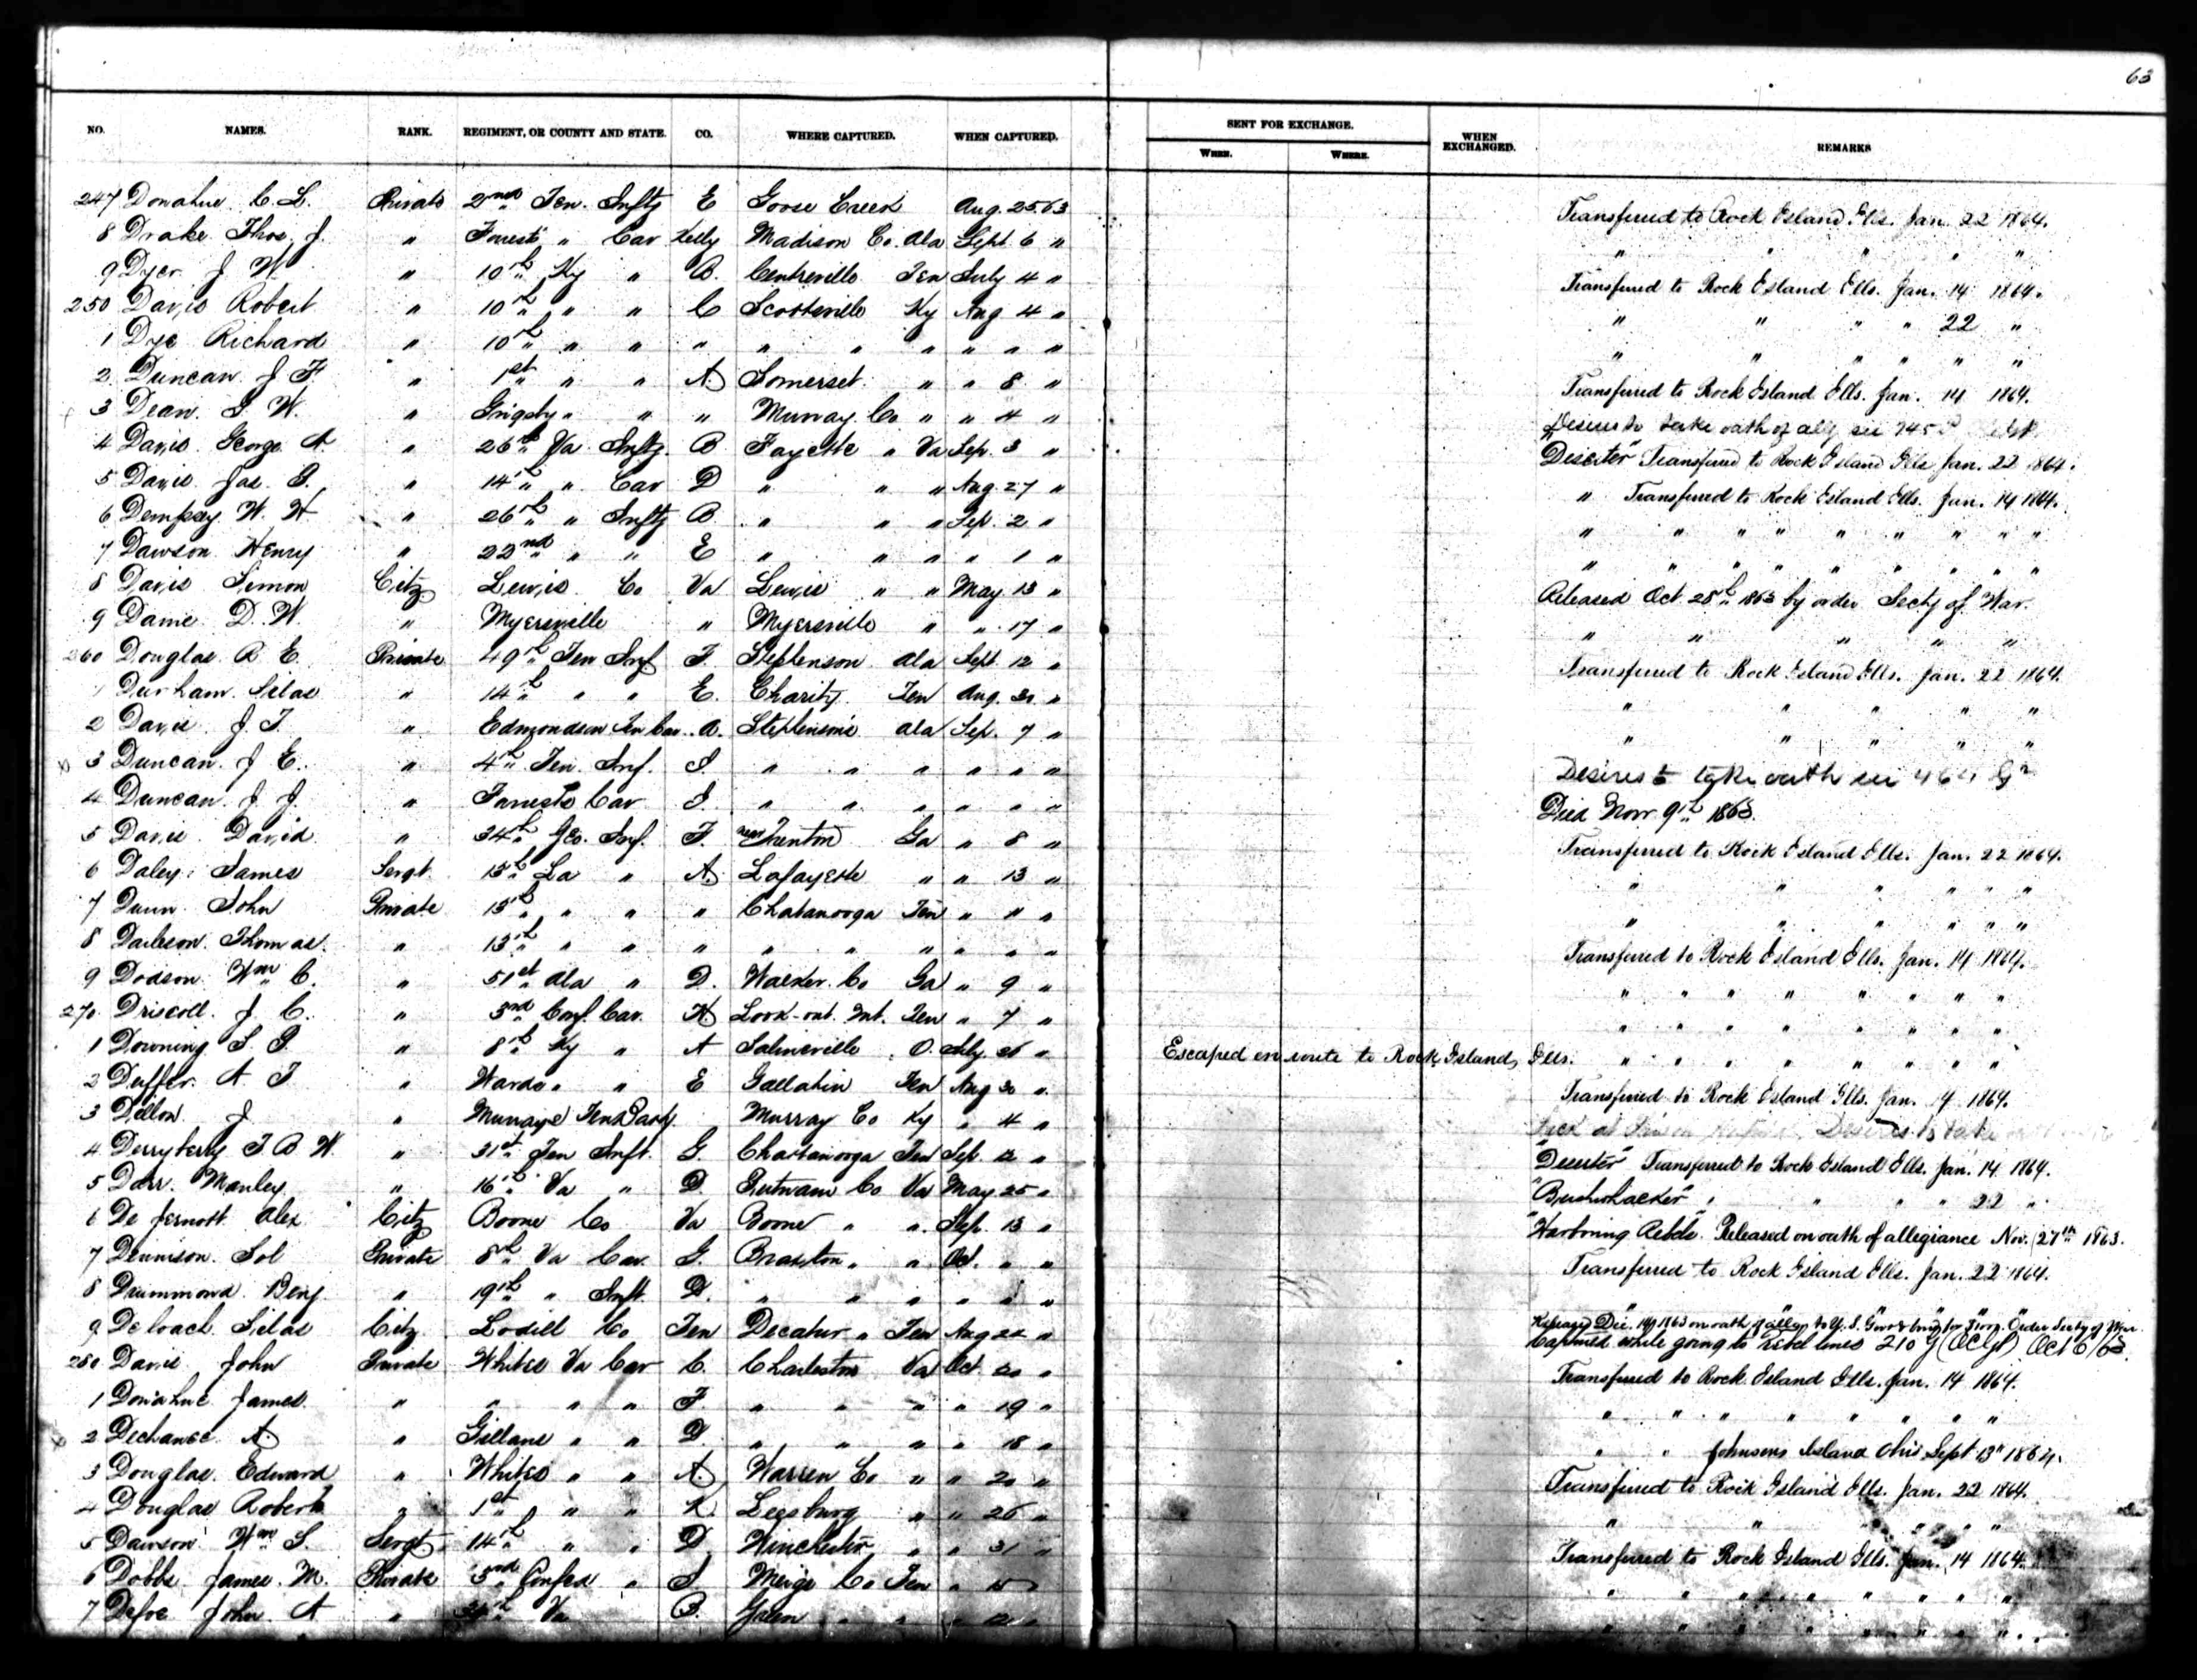 63
NO. NAMES. RANK. REGIMENT, OR COUNTY AND STATE. CO. WHERE CAPTURED. WHEN CAPTURED. SENT FOR EXCHANGE. WHEN EXCHANGED. REMARKS
WHEN. WHERE.
247 Donahue C. L. Private 2nd Ten. Infty E Goose Creek Aug. 25 63 Transferred to Rock Island Ills. Jan. 22 1864.
8 Drake Thos. J. " Forrests " Cav Kelly Madison Co. Ala Sept. 6 " " " " " "
9 Dyer J W " 10th Ky " B. Centreville Ten July 4 " Transferred to Rock Island Ills. Jan. 14 1864.
250 Davis Robert " 10th " " C Scottsville Ky Aug 4 " " " " " 22 "
1 Dye Richard " 10th " " " " " " " " " " " " " " "
2 Duncan J F. " 1st " " A. Somerset " " 8 " Transferred to Rock Island Ills. Jan. 14 1864.
3 Dean. S. W. " Grigsby " " " Murray Co " " 4 " Desires to take oath of alg see 745
4 Davis George A. " 26th Va Infty. B Fayette " Va Sep. 3 " "Deserter" Transferred to Rock Island Ills Jan. 22 1864.
5 Davis. Jas. S. " 14th " Cav D " " " Aug. 27 " " Transferred to Rock Island Ills. Jan. 14 1864.
6 Dempsey W. H " 26th " Infty B. " " " Sep. 2 " " " " " " " " "
7 Dawson Henry " 22nd " " E " " " " 1 " " " " " " " " "
8 Davis Simon Citz. Lewis Co Va Lewis " " May 13 " Released Oct. 28th 1863 by order Secty of War.
9 Dame D. W. " Myersville " Myersville " " 17 " " " " " "
260 Douglas R E. Private 49th Ten Inf F. Stephenson Ala Sept. 12 " Transferred to Rock Island Ills. Jan. 22 1864.
1 Durham. Silas " 14th " " E. Charity Ten Aug. 30 " " " " " "
2 Davis J. T. " Edmondson Ten Cav. A. Stephensons Ala Sep. 7 " " " " " "
3 Duncan. J E. " 4th Ten. Inf. I. " " " " " " Desires to take oath see 464
4 Duncan. J. J. " Forrests Cav I. " " " " " " Died Nov. 9th 1863.
5 Davis. David " 34th Geo. Inf. F. near Trenton Ga " 8 " Transferred to Rock Island Ills. Jan. 22 1864.
6 Daley James Sergt. 13th La " A Lafayette " " 13 " " " " " " "
7 Dunn John Private 13th " " " Chatanooga Ten " " " " " " " " "
8 Thomas. " 13th " " " " " " " " " Transferred to Rock Island Ills. Jan. 14 1864.
9 Dodson Wm C. " 51st Ala " D. Walker Co Ga " 9 " " " " " " " " "
270 Driscoll. J. C. " 3rd Conf. Cav. H Look-out Mt. Ten " 7 " " " " " " " " "
1 Downing S. P. " 8th Ky " A Salineville O. July 26 " Escaped en route to Rock Island, Ills. " " " " " " " "
2 Duffer. A J " Wards " " E Gallatin Ten Aug 30 " Transferred to Rock Island Ills. Jan. 14 1864.
3 Dillon J " Ten Murray Co Ky " 4 " Desires to take
4 Derryberry T. B W. " 31st Ten Inft. G. Chattanooga Ten Sep. 12 " "Deserter" Transferred to Rock Island Ills. Jan. 14 1864.
5 Darr. Manley " 16th Va " D. Putnam Co Va May 25 " "Bushwhacker" " " " " 22 "
6 De Jernott Alex Citz Boone Co Va Boone " " Sep. 13 " "Harboring Rebels." Released on oath of allegiance Nov. 27th 1863.
7 Dennison. Sol Private 8th Va Cav. G. Braxton " " Oct. " " Transferred to Rock Island Ills. Jan. 22 1864.
8 Drummond Benj. " 19th " Inft. D. " " " " " " " " " " "
9 Deloach. Silas Citz. Co Ten Decatur " Ten Aug 22 " Released Dec. 1863 on oath of alleg. to U. S. Gov't Order Secty of War. Captured while going to rebel lines 210 Oct 6/63.
280 Davis John Private Whites Va Cav C. Charleston Va Oct. 20 " Transferred to Rock Island Ills. Jan. 14 1864.
1 Donahue James " " " " F. " " " " 19 " " " " " " " " "
2 Dechanse A " " " D " " " " 18 " " " Johnsons Island Ohio Sept 13th 1864.
3 Douglas. Edward " Whites " " A. Warren Co " " 20 " Transferred to Rock Island Ills. Jan. 22 1864.
4 Douglas Robert " 1st " " K. Leesburg " " 26 " " " " " "
5 Dawson Wm S. Sergt 14th " " D Winchester " " 31 " Transferred to Rock Island Ills. Jan. 14 1864.
6 Dobbs James. M. Private 3rd Confed " I Meigs Co Ten " 15 " " " " " " " "
7 Defoe John A " Va B. " " " 12 " " " " " " " " "